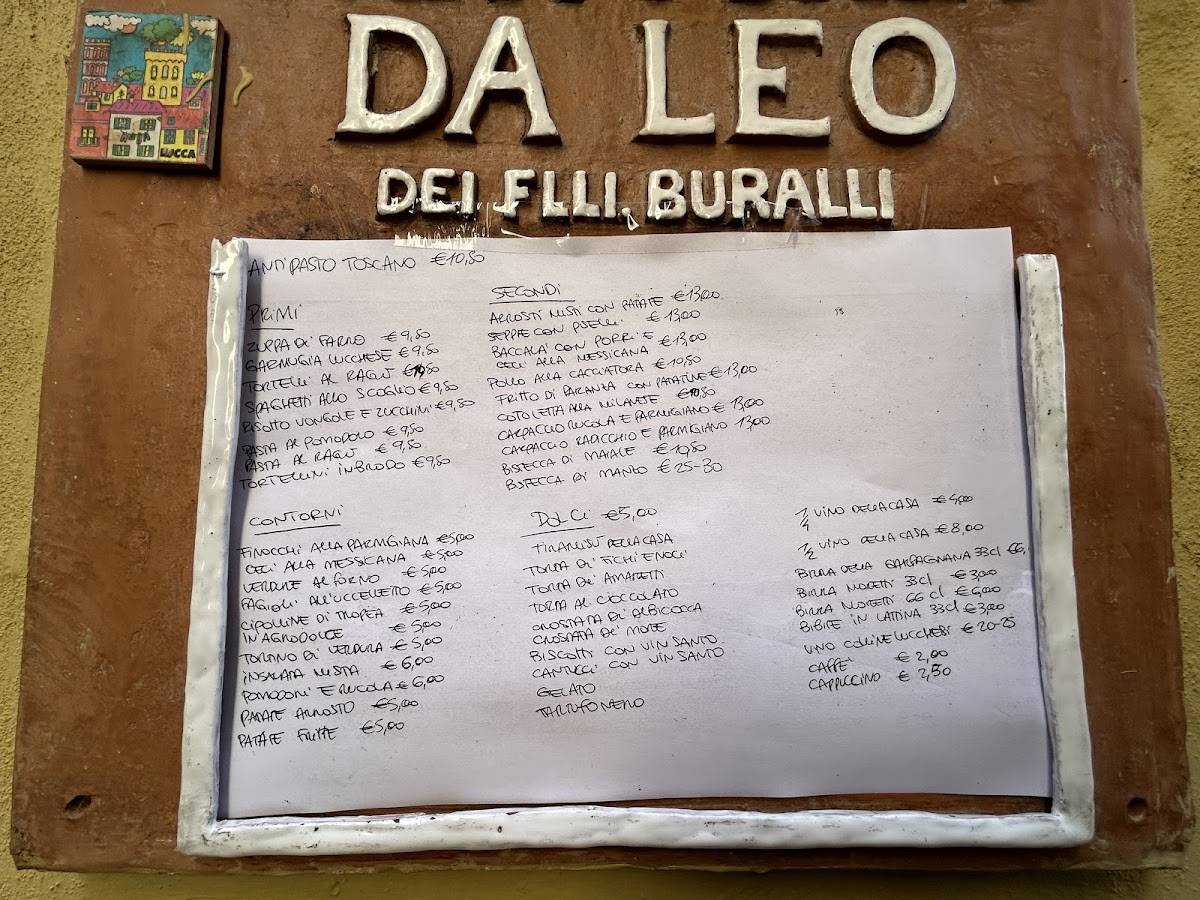 LUCCA
DA LEO
DEI F.LLI. BURALLI
ANTIPASTO TOSCANO €10,50
PRIMI
ZUPPA DI FARRO €9,50
GARMUGIA LUCCHESE €9,50
TORTELLI AL RAGU'
SPAGHETTI ALLO SCOGLIO €9,50
RISOTTO VONGOLE E ZUCCHINI €9,50
PASTA AL POMODORO €9,50
PASTA AL RAGU' €9,50
TORTELLINI IN BRODO €9,50
SECONDI
ARROSTI MISTI CON PATATE €13,00
SEPPIE CON PISELLI €13,00
BACCALA' CON PORRI E €13,00
CECI ALLA MESSICANA
POLLO ALLA CACCIATORA €10,50
FRITTO DI PARANZA CON PATATINE €13,00
COTOLETTA ALLA MILANESE €10,50
CARPACCIO RUCOLA E PARMIGIANO € 13,00
CARPACCIO RADICCHIO E PARMIGIANO 13,00
BISTECCA DI MAIALE €10,50
BISTECCA DI MANZO €25-30
CONTORNI
FINOCCHI ALLA PARMIGIANA €5,00
CECI ALLA MESSICANA €5,00
VERDURE AL FORNO €5,00
FAGIOLI ALL'UCCELLETTO €5,00
CIPOLLINE DI TROPEA
IN AGRODOLCE €5,00
TORTINO DI VERDURA €5,00
INSALATA MISTA €6,00
POMODORI E RUCOLA €6,00
PATATE ARROSTO €5,00
PATATE FRITTE €5,00
DOLCI €5,00
TIRAMISU DELLA CASA
TORTA DI FICHI E NOCI
TORTA DI AMARETTI
TORTA AL CIOCCOLATO
CROSTATA DI ALBICOCCA
CROSTATA DI MORE
BISCOTTI CON VIN SANTO
CANTUCCI CON VIN SANTO
GELATO
TARTUFO NERO
1/4 VINO DELLA CASA
1/2 VINO DELLA CASA €8,00
BIRRA DELLA GARFAGNANA 33cl €6,
BIRRA MORETTI 33cl €3,00
BIRRA MORETTI 66cl €6,00
BIBITE IN LATTINA 33cl €3,00
VINO COLLINE LUCCHESI €20-25
CAFFE' € 2,00
CAPPUCCINO € 2,50